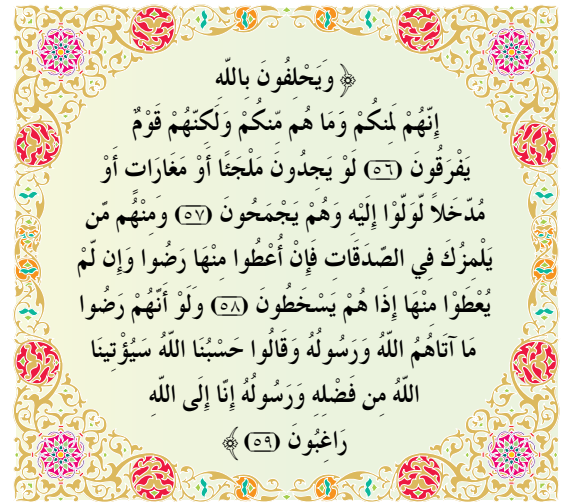 ﴿ وَيَحْلِفُونَ بِاللّهِ
إِنَّهُمْ لَمِنكُمْ وَمَا هُم مِّنكُمْ وَلَكِنَّهُمْ قَوْمٌ
يَفْرَقُونَ (٥٦) لَوْ يَجِدُونَ مَلْجَئًا أَوْ مَغَارَاتٍ أَوْ
مُدَّخَلاً لَّوَلَّوْا إِلَيْهِ وَهُمْ يَجْمَحُونَ (٥٧) وَمِنْهُم مَّن
يَلْمِزُكَ فِي الصَّدَقَاتِ فَإِنْ أُعْطُوا مِنْهَا رَضُوا وَإِن لَّمْ
يُعْطَوْا مِنْهَا إِذَا هُمْ يَسْخَطُونَ (٥٨) وَلَوْ أَنَّهُمْ رَضُوا
مَا آتَاهُمُ اللّهُ وَرَسُولُهُ وَقَالُوا حَسْبُنَا اللّهُ سَيُؤْتِينَا
اللّهُ مِن فَضْلِهِ وَرَسُولُهُ إِنَّا إِلَى اللّهِ
رَاغِبُونَ (٥٩) ﴾